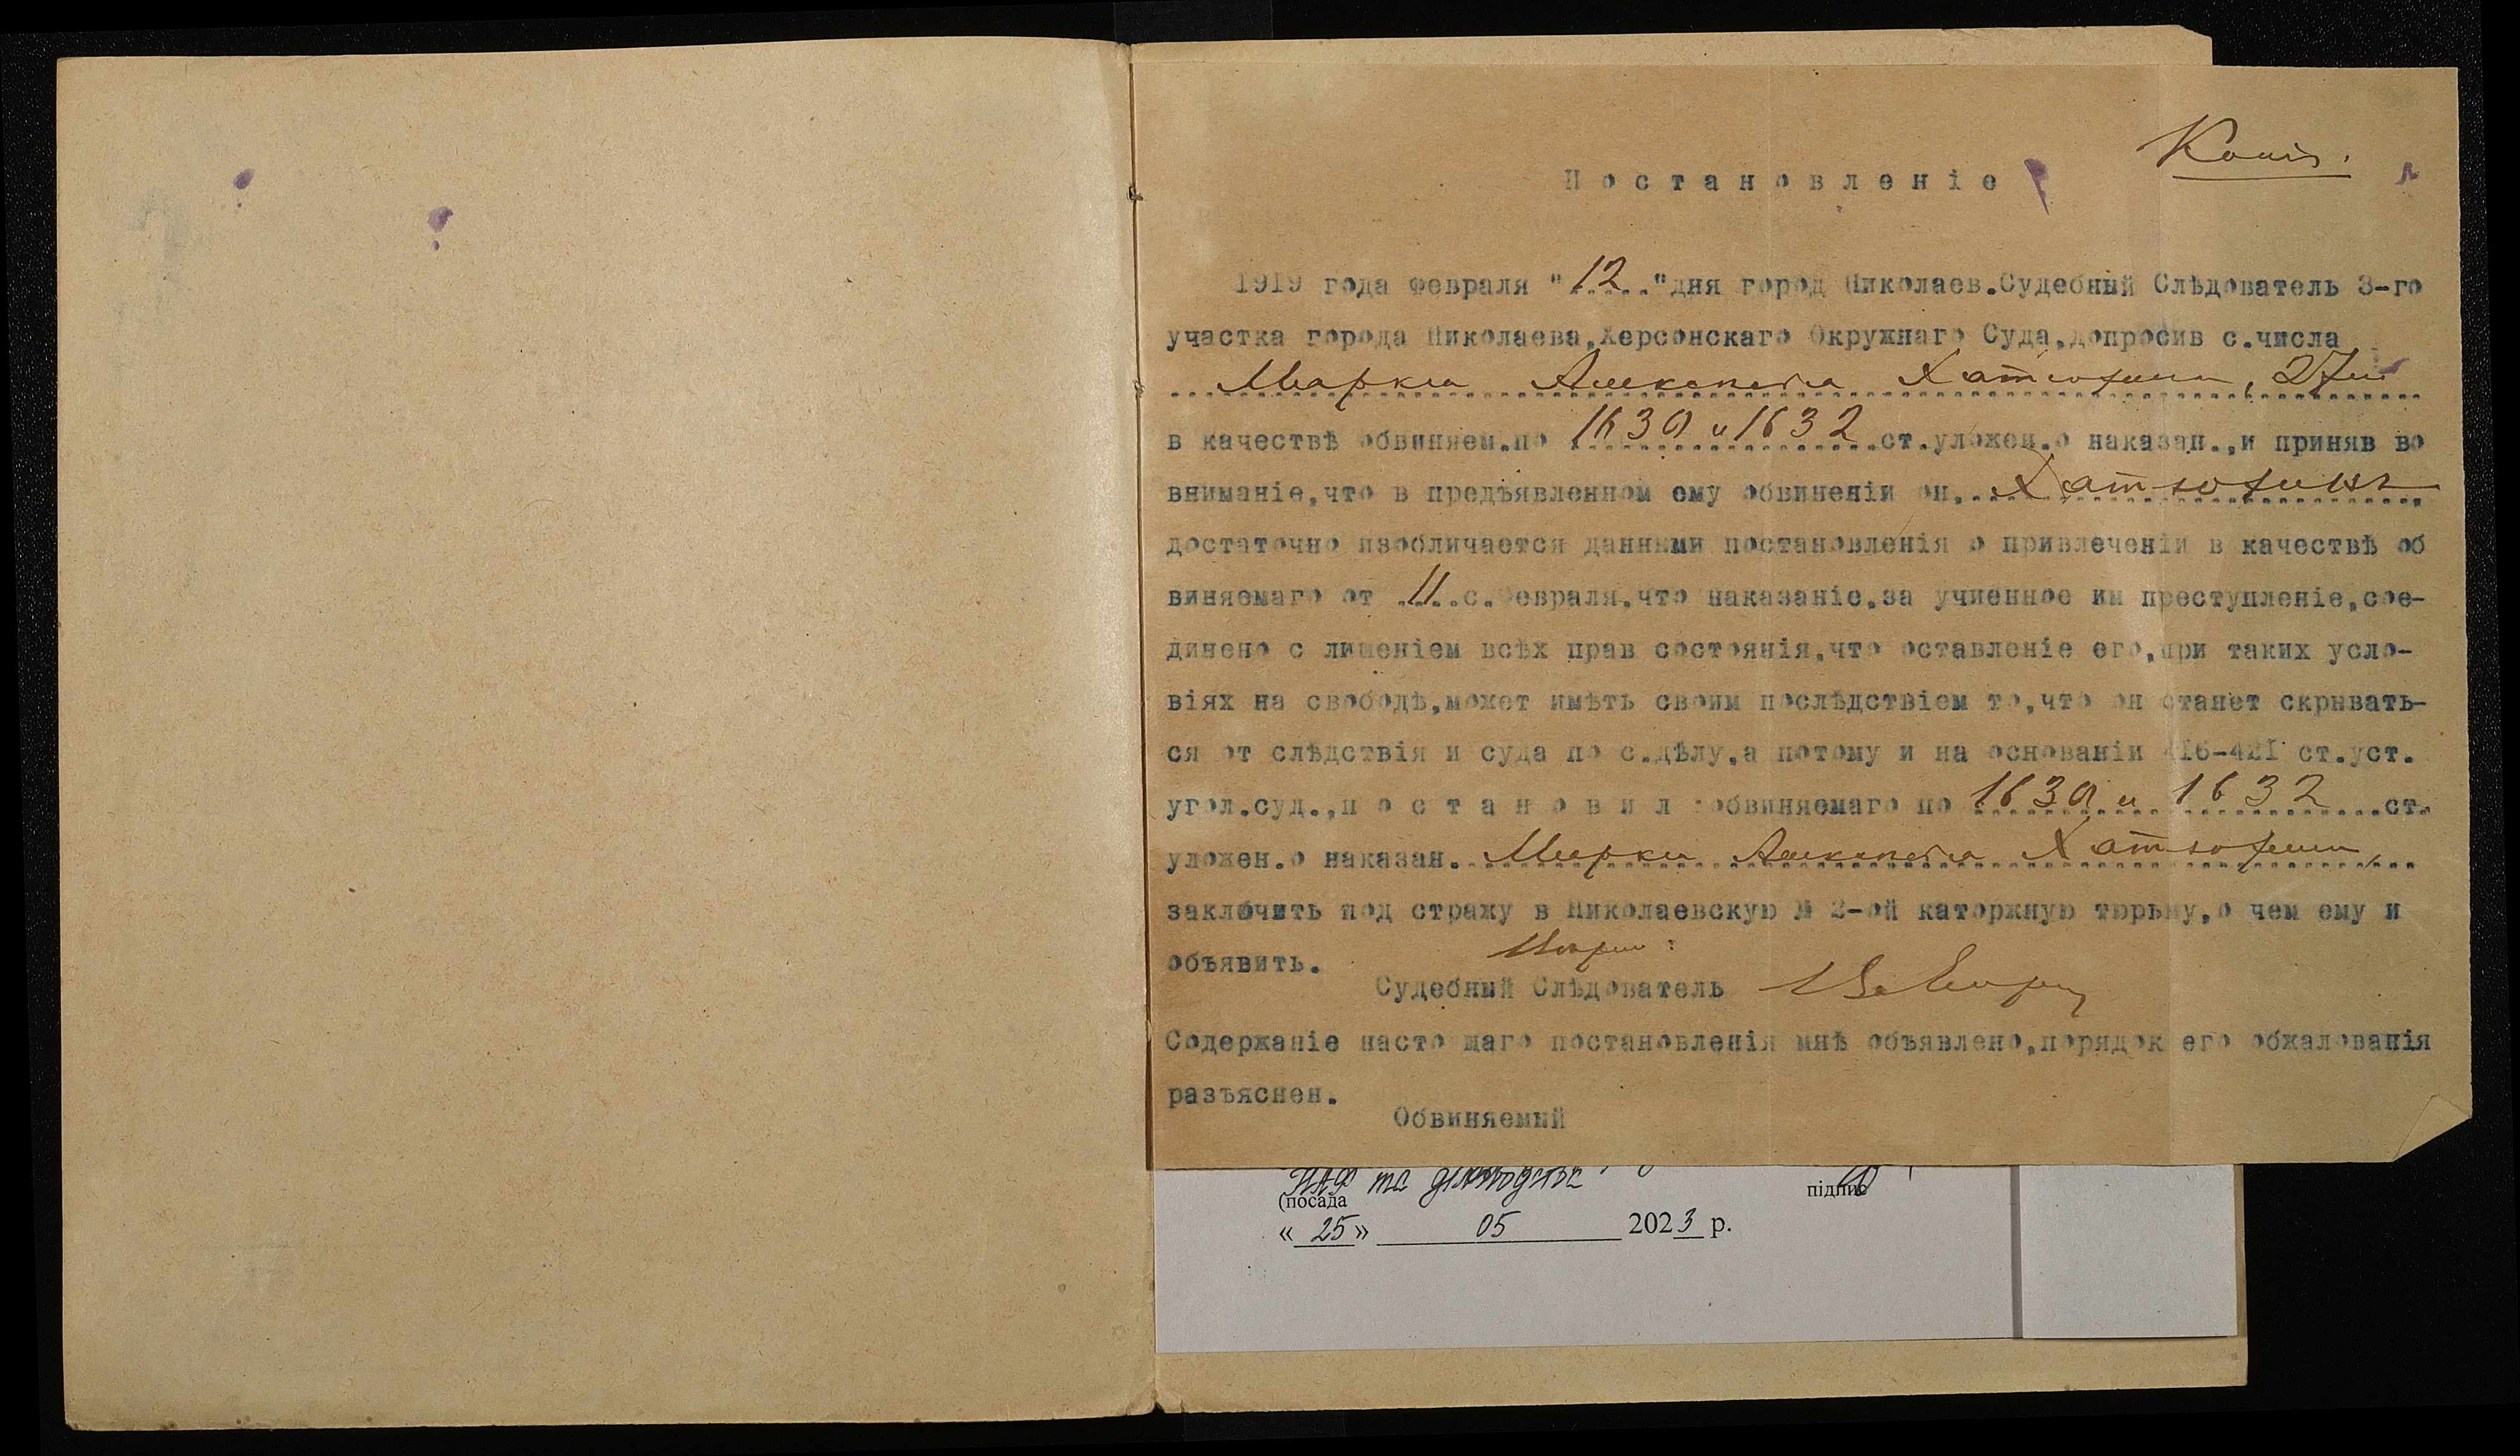 Копія.
Постановленіе
1919 года Февраля "12" дня город Николаев.Судебный Слѣдователь 3-го
участка города Николаева,Херсонскаго Окружнаго Суда,допросив с.числа
Марка Алексеева Хатюхина, 27
в качествѣ обвиняем.по 1630 и 1632 ст.уложен.о наказан.,и приняв во
вниманіе,что в предъявленном ему обвиненіи он, Хатюхинъ
достаточно изобличается данными постановленія о привлеченіи в качествѣ об
виняемаго от 11 с.Февраля,что наказаніе,за учиенное им преступленіе,сое-
динено с лишеніем всѣх прав состоянія,что оставленіе его,при таких усло-
віях на свободѣ,может имѣть своим послѣдствіем то,что он станет скрывать-
ся от слѣдствія и суда по с.дѣлу,а потому и на основаніи 416-421 ст.уст.
угол.суд.,п о с т а н о в и л :обвиняемаго по 1630 и 1632 ст.
уложен.о наказан. Марка Алексеева Хатюхина,
заключить под стражу в Николаевскую № 2-ой каторжную тюрьму,о чем ему и
объявить.
Судебный Слѣдователь
Содержаніе насто щаго постановленія мнѣ объявлено,порядок его обжалованія
разъяснен.
Обвиняемый
НАФ та діловодства
(посада підпис
« 25 » 05 2023 р.